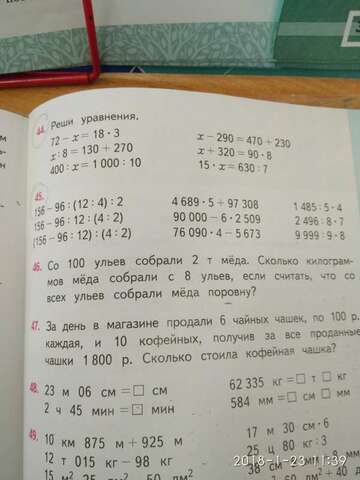 44. Реши уравнения.
72 − x = 18 · 3
x − 290 = 470 + 230
x : 8 = 130 + 270
x + 320 = 90 · 8
400 : x = 1 000 : 10
15 · x = 630 : 7
45.
156 − 96 : (12 : 4) : 2
4 689 · 5 + 97 308
1 485 : 5 · 4
156 − 96 : 12 : (4 : 2)
90 000 − 6 · 2 509
2 496 : 8 · 7
(156 − 96 : 12) : (4 : 2)
76 090 · 4 − 5 673
9 999 : 9 · 8
46. Со 100 ульев собрали 2 т мёда. Сколько килограм-
мов мёда собрали с 8 ульев, если считать, что со
всех ульев собрали мёда поровну?
47. За день в магазине продали 6 чайных чашек, по 100 р.
каждая, и 10 кофейных, получив за все проданные
чашки 1 800 р. Сколько стоила кофейная чашка?
48. 23 м 06 см = □ см
62 335 кг = □ т □ кг
2 ч 45 мин = □ мин
584 мм = □ см □ мм
49.
10 км 875 м + 925 м
17 м 30 см · 6
12 т 015 кг − 98 кг
25 ц 80 кг : 3
2018-1-23 11:39